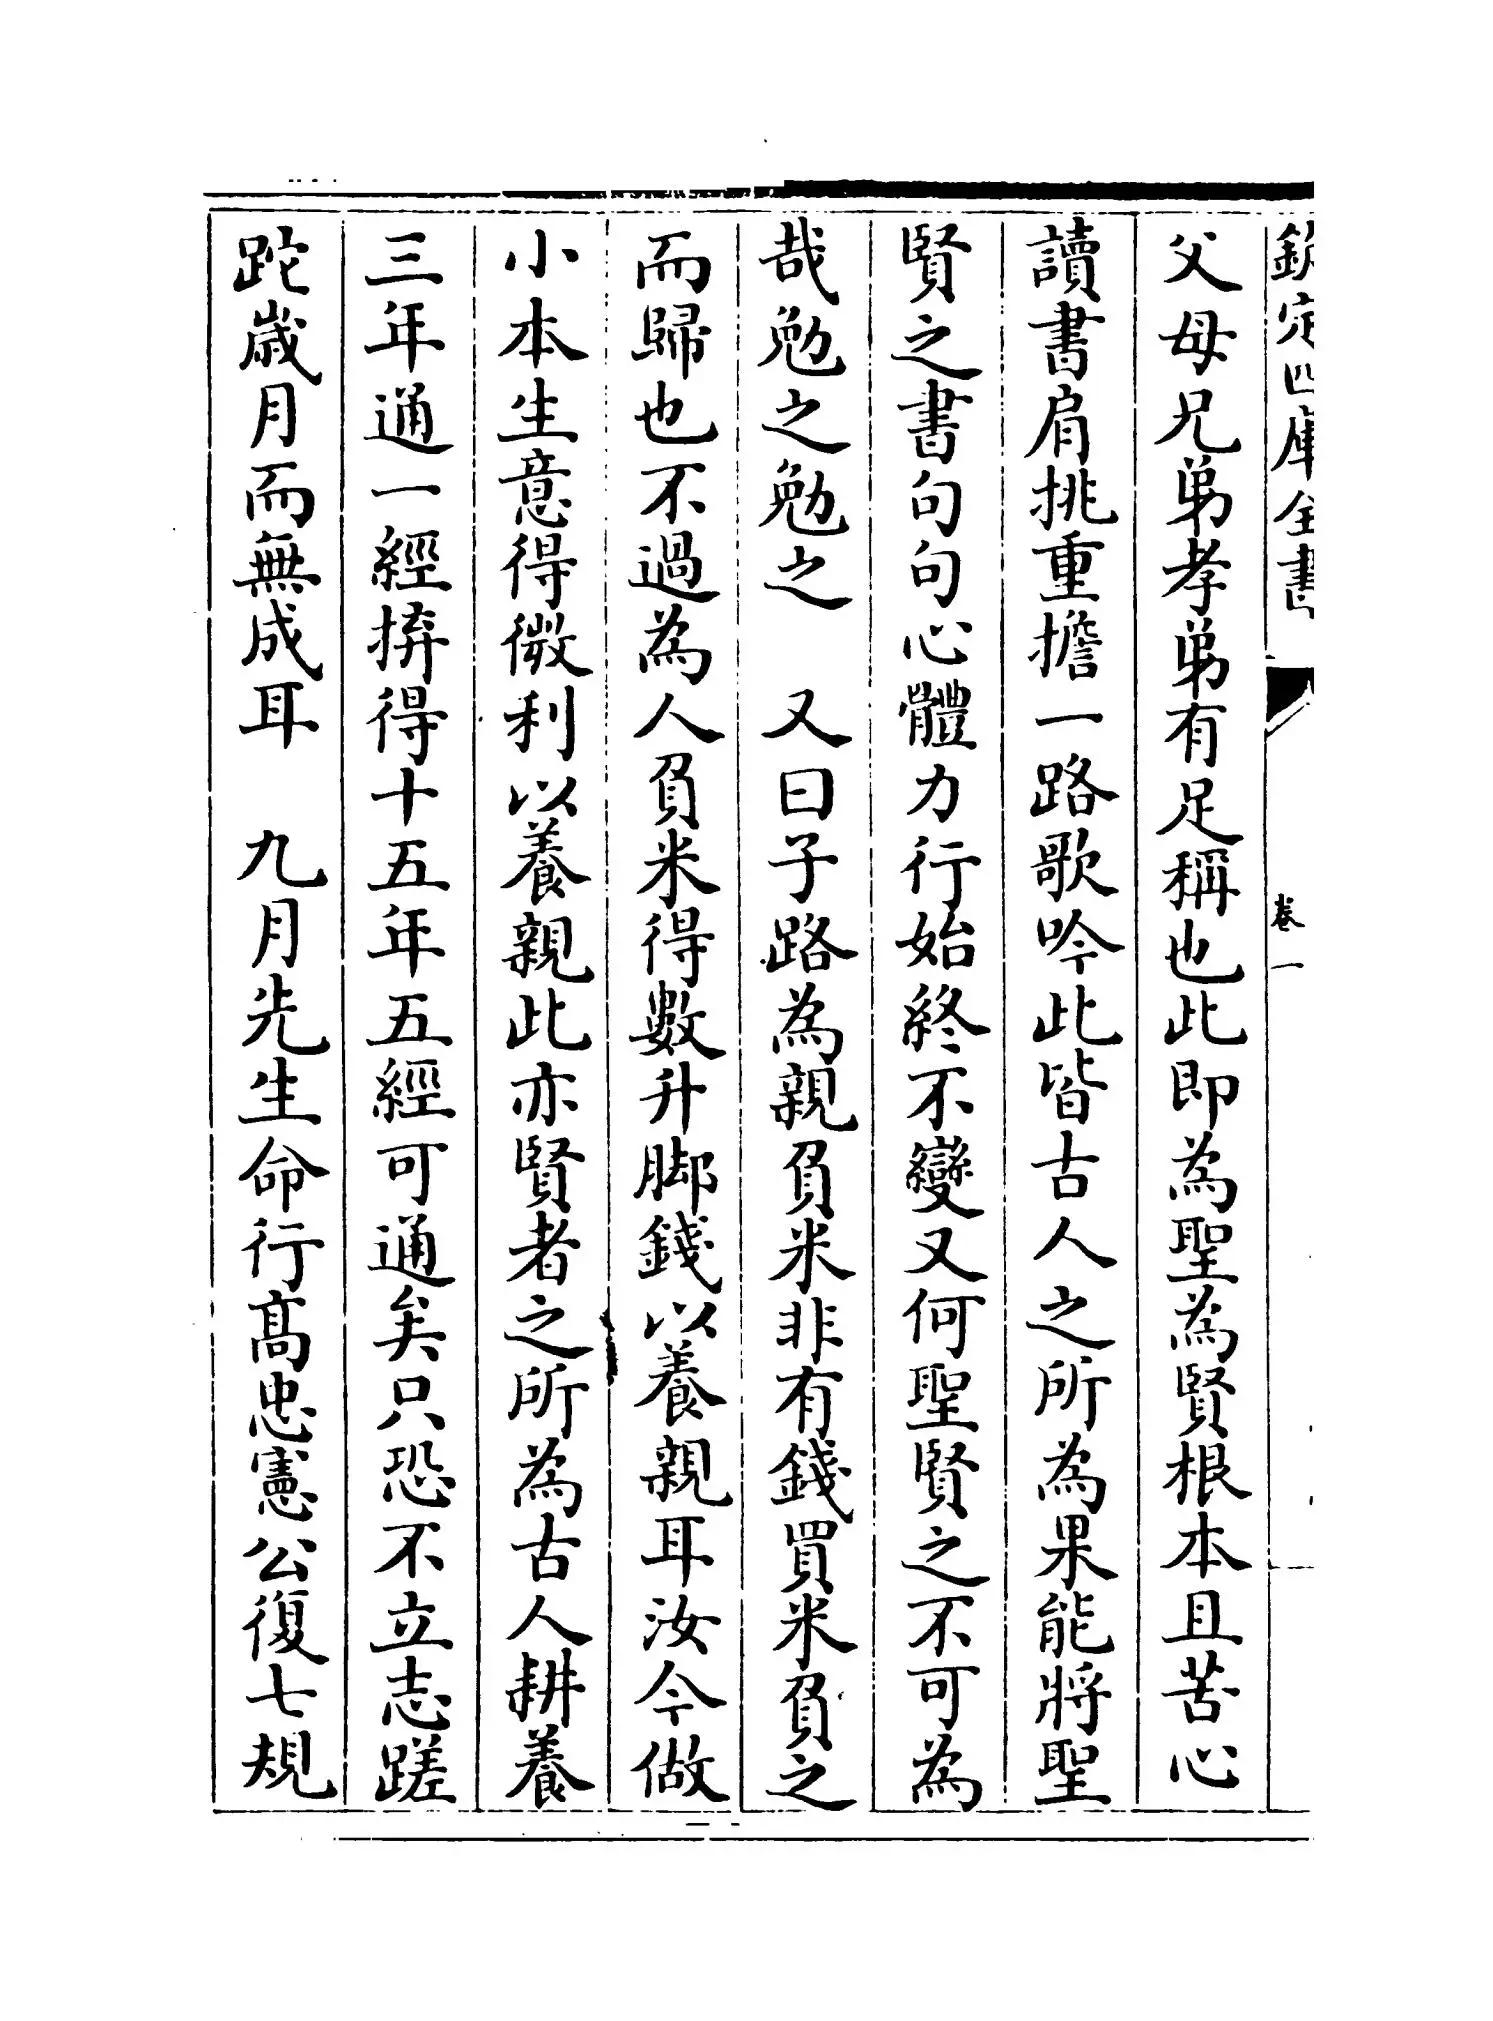 欽定四庫全書
卷一
父母兄弟孝弟有足稱也此即為聖為賢根本且苦心
讀書肩挑重擔一路歌吟此皆古人之所為果能將聖
賢之書句句心體力行始終不變又何聖賢之不可為
哉勉之勉之　又曰子路為親負米非有錢買米負之
而歸也不過為人負米得數升脚錢以養親耳汝今做
小本生意得微利以養親此亦賢者之所為古人耕養
三年通一經揜得十五年五經可通矣只恐不立志蹉
跎歲月而無成耳　九月先生命行髙忠憲公復七規